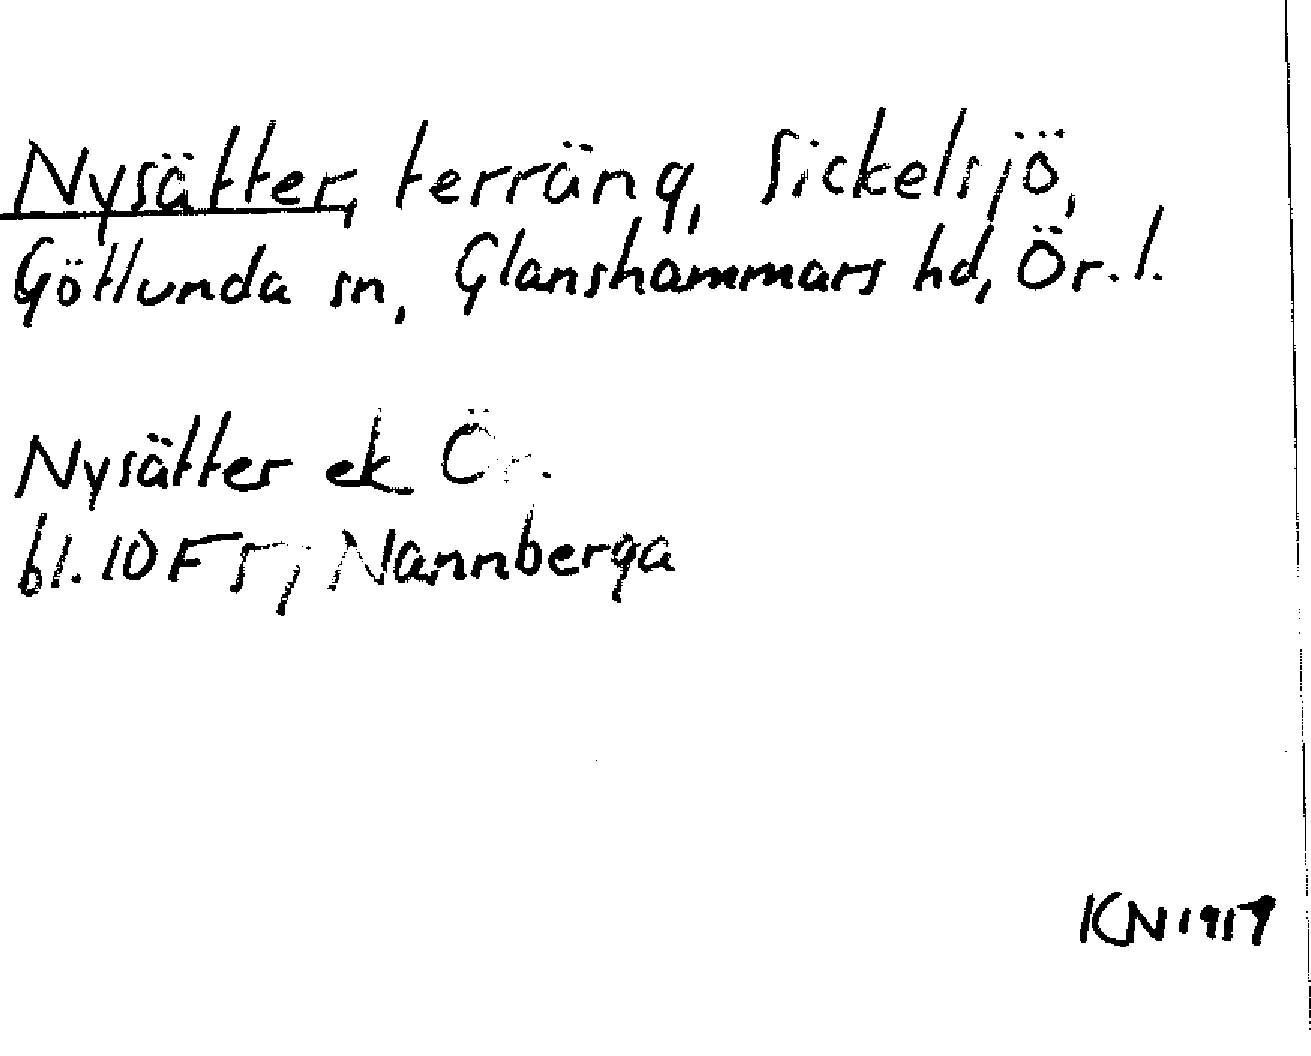 Nysätter, terräng, Sickelsjö,
Götlunda sn, Glanshammars hd, Ör. l.
Nysätter ek Ör.
bl. 10F5, Nannberga
KN 1917